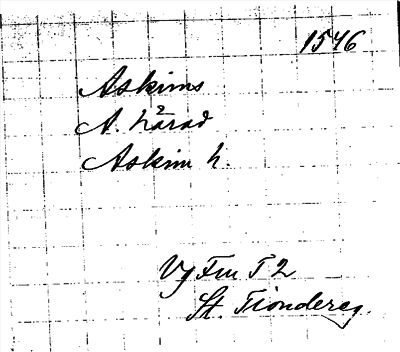 1546
Askims
A. härad
Askim h.
Vg Fru T 2
St. Tiondereg.